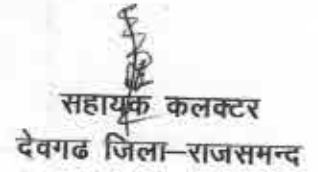 सहायक कलक्टर
देवगढ जिला–राजसमन्द